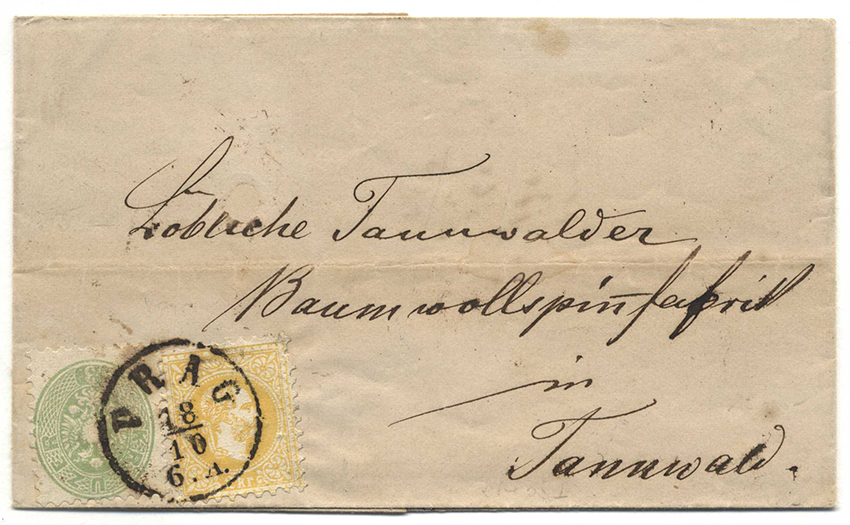 Löbliche Tannwalder
Baumwollspinnfabrik
in
Tannwald.
PRAG
18/10
6.A.